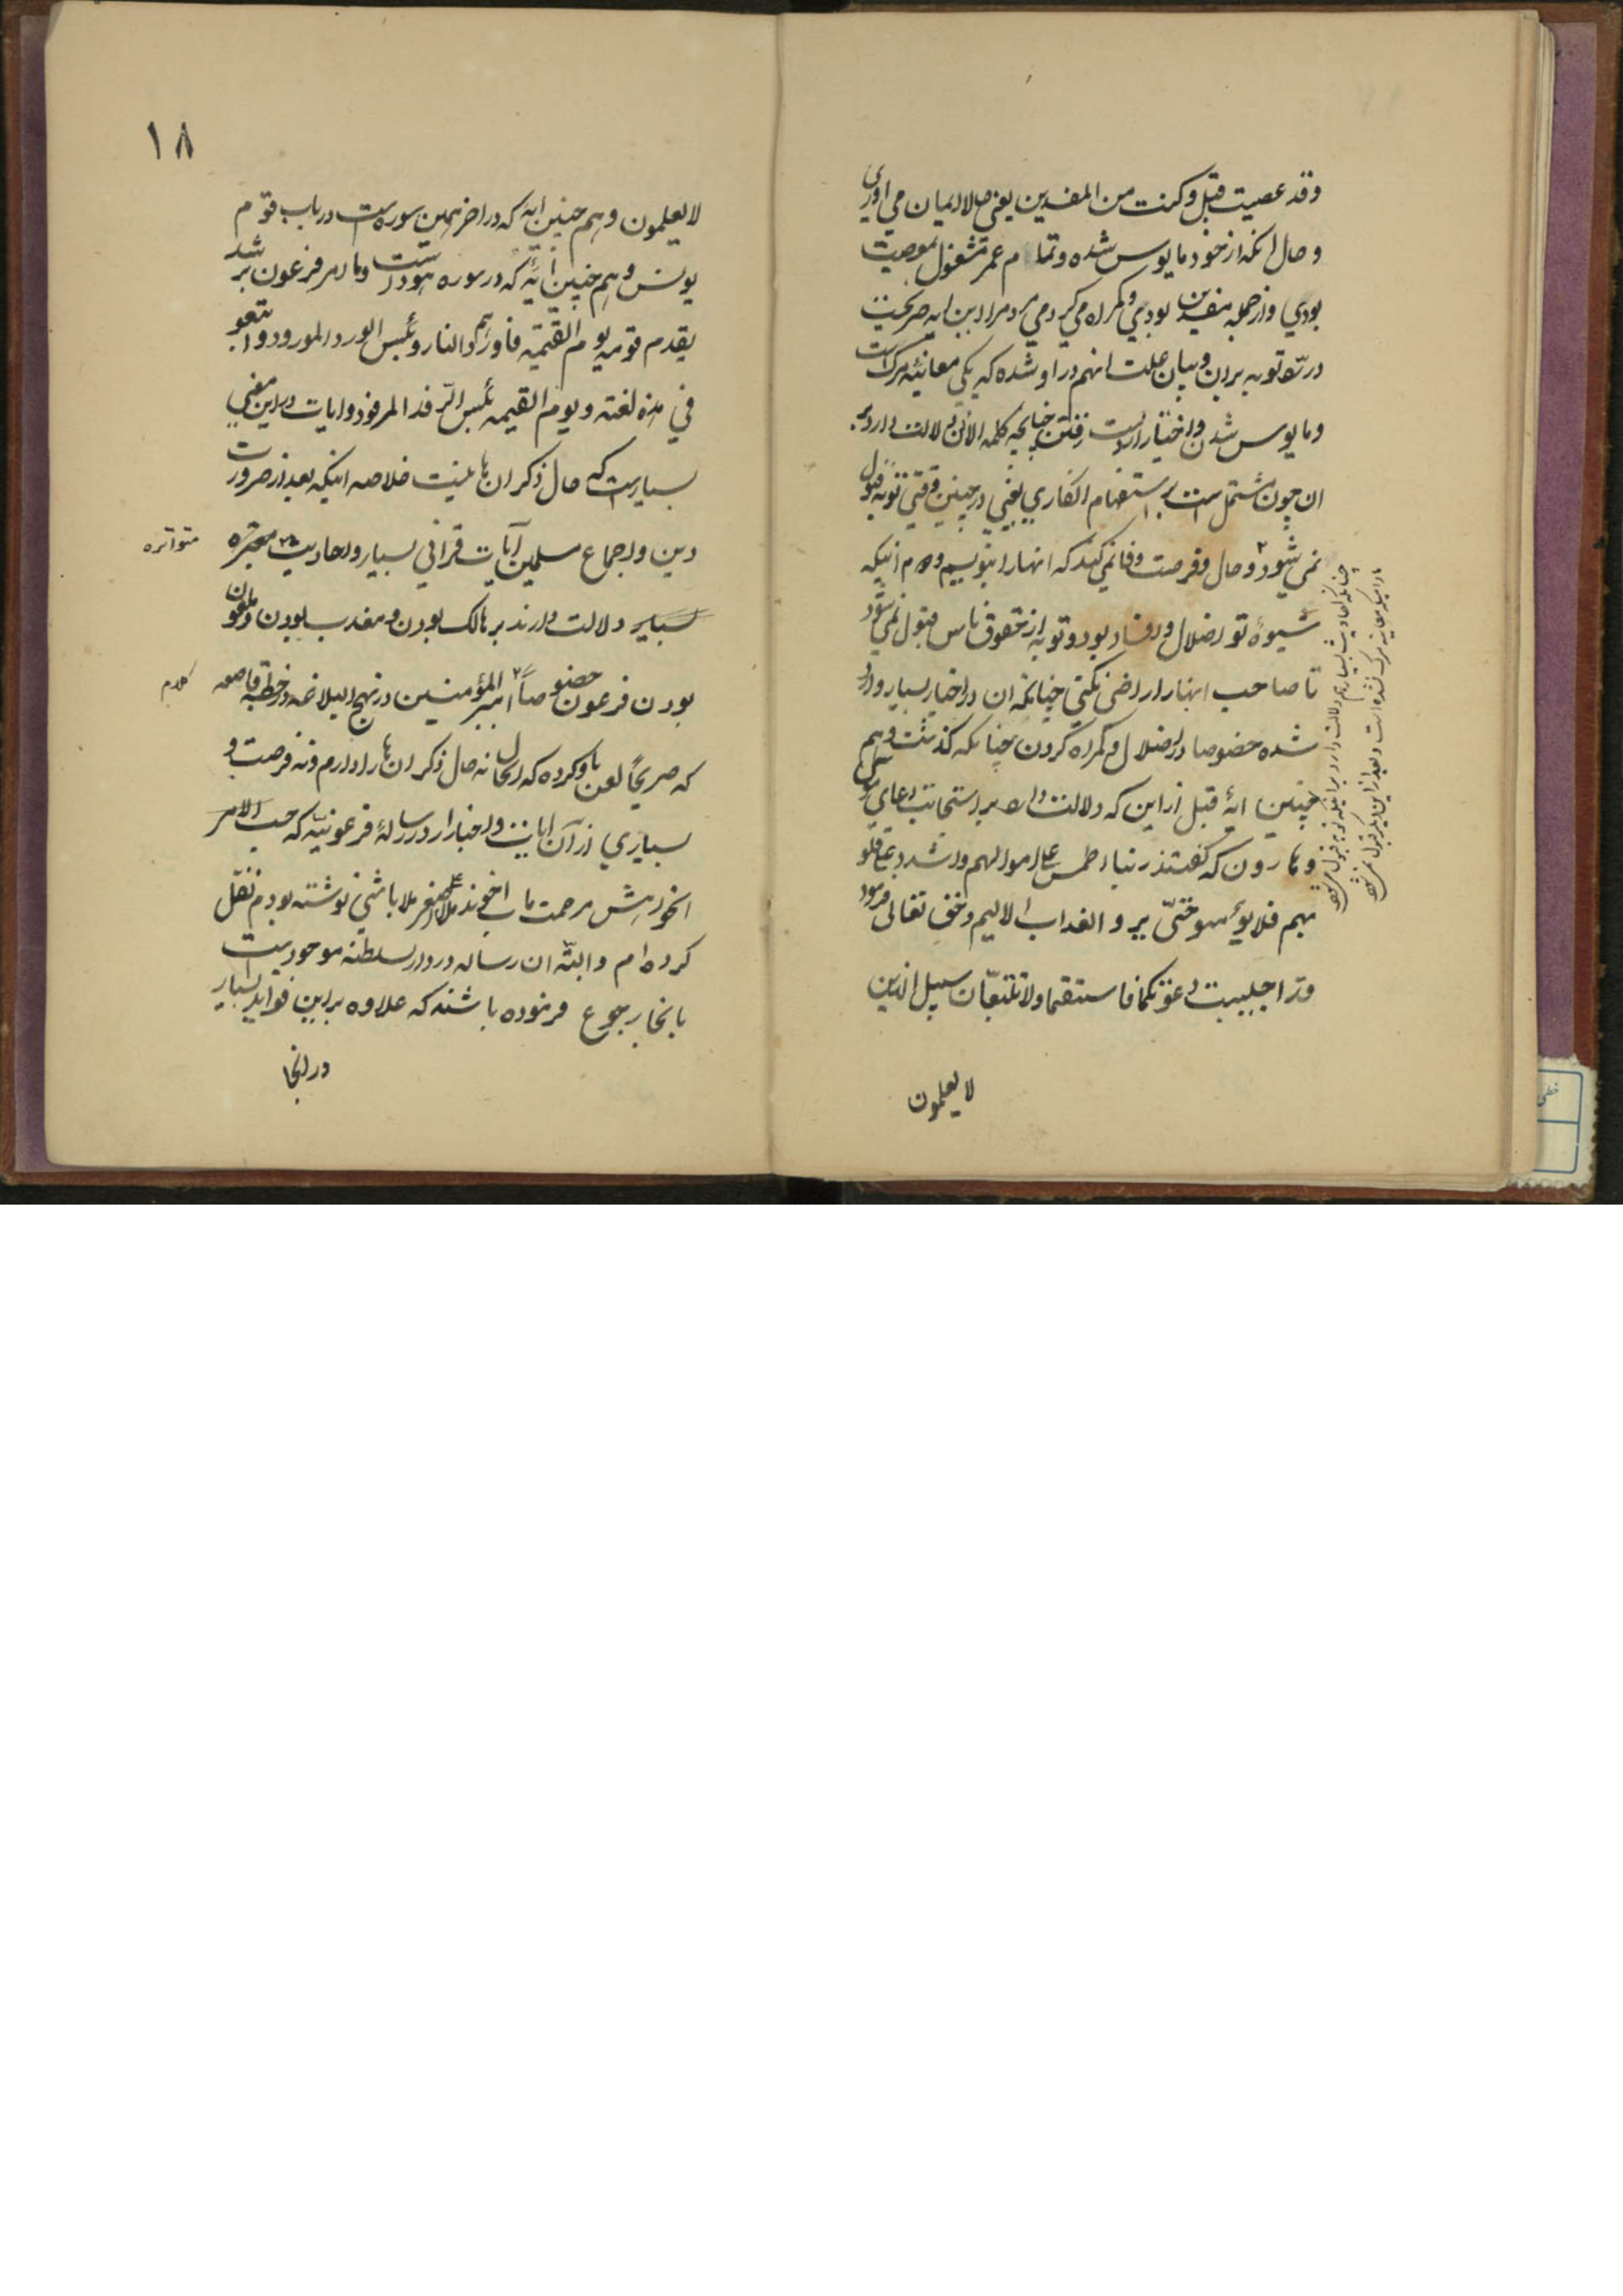 وقد عصیت قبل وکنت من المفسدین یعنی حالا ایمان می اوری
و حال انکه از خود مایوس شده و تمام عمر مشغول بمعصیت
بودی و از جمله مفسدین بودی و گمراه می کردی مردم را و این ایه صریحست
در رد توبه بر ان و بیان علت انهم در او شده که یکی معاینه مرک است
و مایوس شدن و اختیار از دست رفتن چنانچه کلمه الان دلالت دارد بر
ان چون مشتمل است بر استفهام انکاری یعنی در چنین وقتی توبه قبول
نمی شود و حال و فرصت وفا نمی کند که انها را بنویسیم دوم اینکه
شیوهٔ تو اضلال و افساد بود و توبه از حقوق ناس قبول نمی شود
تا صاحب انها را راضی نکنی چنانکه ان در اخبار بسیار وارد
شده خصوصا در اضلال و گمراه کردن چنانکه گذشت و هم
چنین ایهٔ قبل از این که دلالت دارد بر استجابت دعای موسی
و هارون که گفتند ربنا اطمس علی اموالهم و اشدد علی قلو
بهم فلا یؤمنوا حتّی یروا العذاب الالیم و حق تعالی فرمود
قد اجیبت دعوتکما فاستقیما ولا تتبعانّ سبیل الذین
لا یعلمون
چنانکه احادیث بسیار هم دلالت دارد بر اینکه توبه قبول می شود
مادامیکه معاینه مرک نشده است و بعد از این دیگر قبول نمی شود
۱۸
لا یعلمون و هم چنین ایه که در اخر همین سوره است در باب قوم
یونس و هم چنین ایهٔ که در سوره هود است وما امر فرعون برشد
یقدم قومه یوم القیمة فاوردهم النار وبئس الورد المورود واتبعوا
فی هذه لعنة ویوم القیمه بئس الرّفد المرفود و ایات در این معنی
بسیار است که حال ذکر ان ها نیست خلاصه اینکه بعد از ضرورت
دین و اجماع مسلمین آیات قرانی بسیار و احادیث معتبره
متواتره
بسیار دلالت دارند بر هالک بودن و معذب بودن و ملعون
بودن فرعون خصوصاً امیر المؤمنین در نهج البلاغه در خطبه قاصعه
کلام
که صریحاً لعن باو کرده که الحال نه حال ذکر ان ها را دارم و نه فرصت و
بسیاری از آن ایات و اخبار را در رسالهٔ فرعونیّه که حسب الامر
اخوند مرحمت ماب اخوند ملا علی اصغر ملا باشی نوشته بودم نقل
کرده ام و البتّه ان رساله در دار السلطنه موجود است
بانجا رجوع فرموده باشند که علاوه بر این فواید بسیار
در انجا
خطی